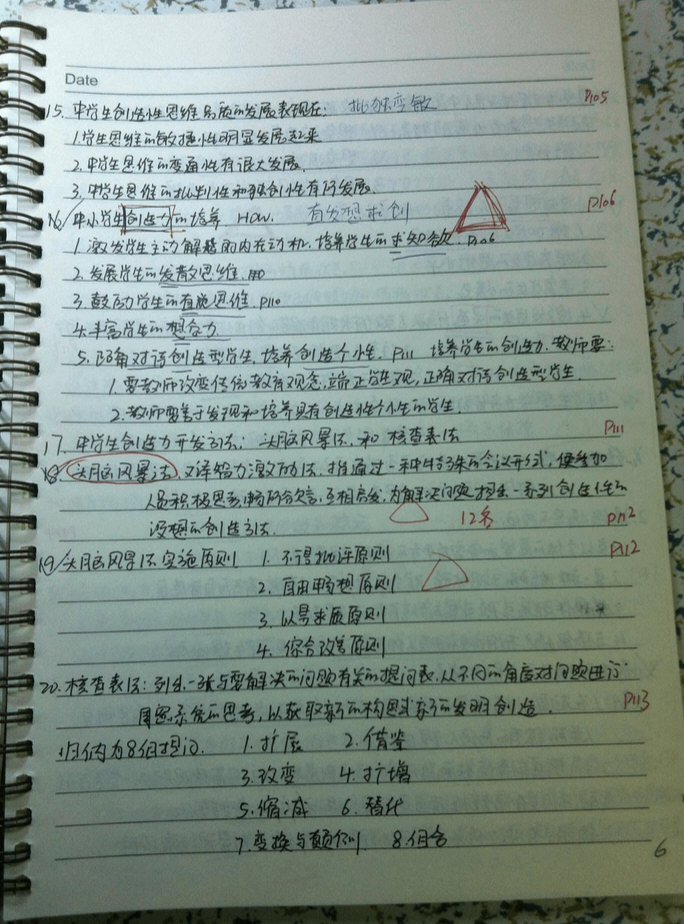 Date
15. 中学生创造性思维品质的发展表现在: 批独变敏 P105
1.学生思维的敏捷性明显发展起来
2.中学生思维的变通性有很大发展.
3.中学生思维的批判性和独创性有所发展.
16. 中小学生创造力的培养 HOW. 直发想求创 P106
1.激发学生主动解惑的内在动机, 培养学生的求知欲. P106
2.发展学生的发散思维.
3.鼓励学生的直觉思维. P110
4.丰富学生的想象力
5.正确对待创造型学生, 培养创造个性. P111 培养学生的创造力. 教师要:
1.要教师改变传统教育观念, 端正学生观, 正确对待创造型学生.
2.教师要善于发现和培养具有创造性个性的学生.
17. 中学生创造力开发方法: 头脑风暴法, 和 核查表法 P111
18. 头脑风暴法, 又译智力激励法, 指通过一种特殊的会议形式, 使参加
人员积极思考, 畅所欲言, 互相启发, 为解决问题提出一系列创造性的
设想的创造方法. 12名 P112
19. 头脑风暴法实施原则 1. 不得批评原则 P112
2. 自由畅想原则
3. 以量求质原则
4. 综合改善原则
20. 核查表法: 列出一张与要解决的问题有关的提问表, 从不同的角度对问题进行
周密系统的思考, 以获取新的构思或新的发明创造. P113
归纳为8组提问. 1.扩展 2.借鉴
3.改变 4.扩增
5.缩减 6.替代
7.变换与颠倒 8.组合
6